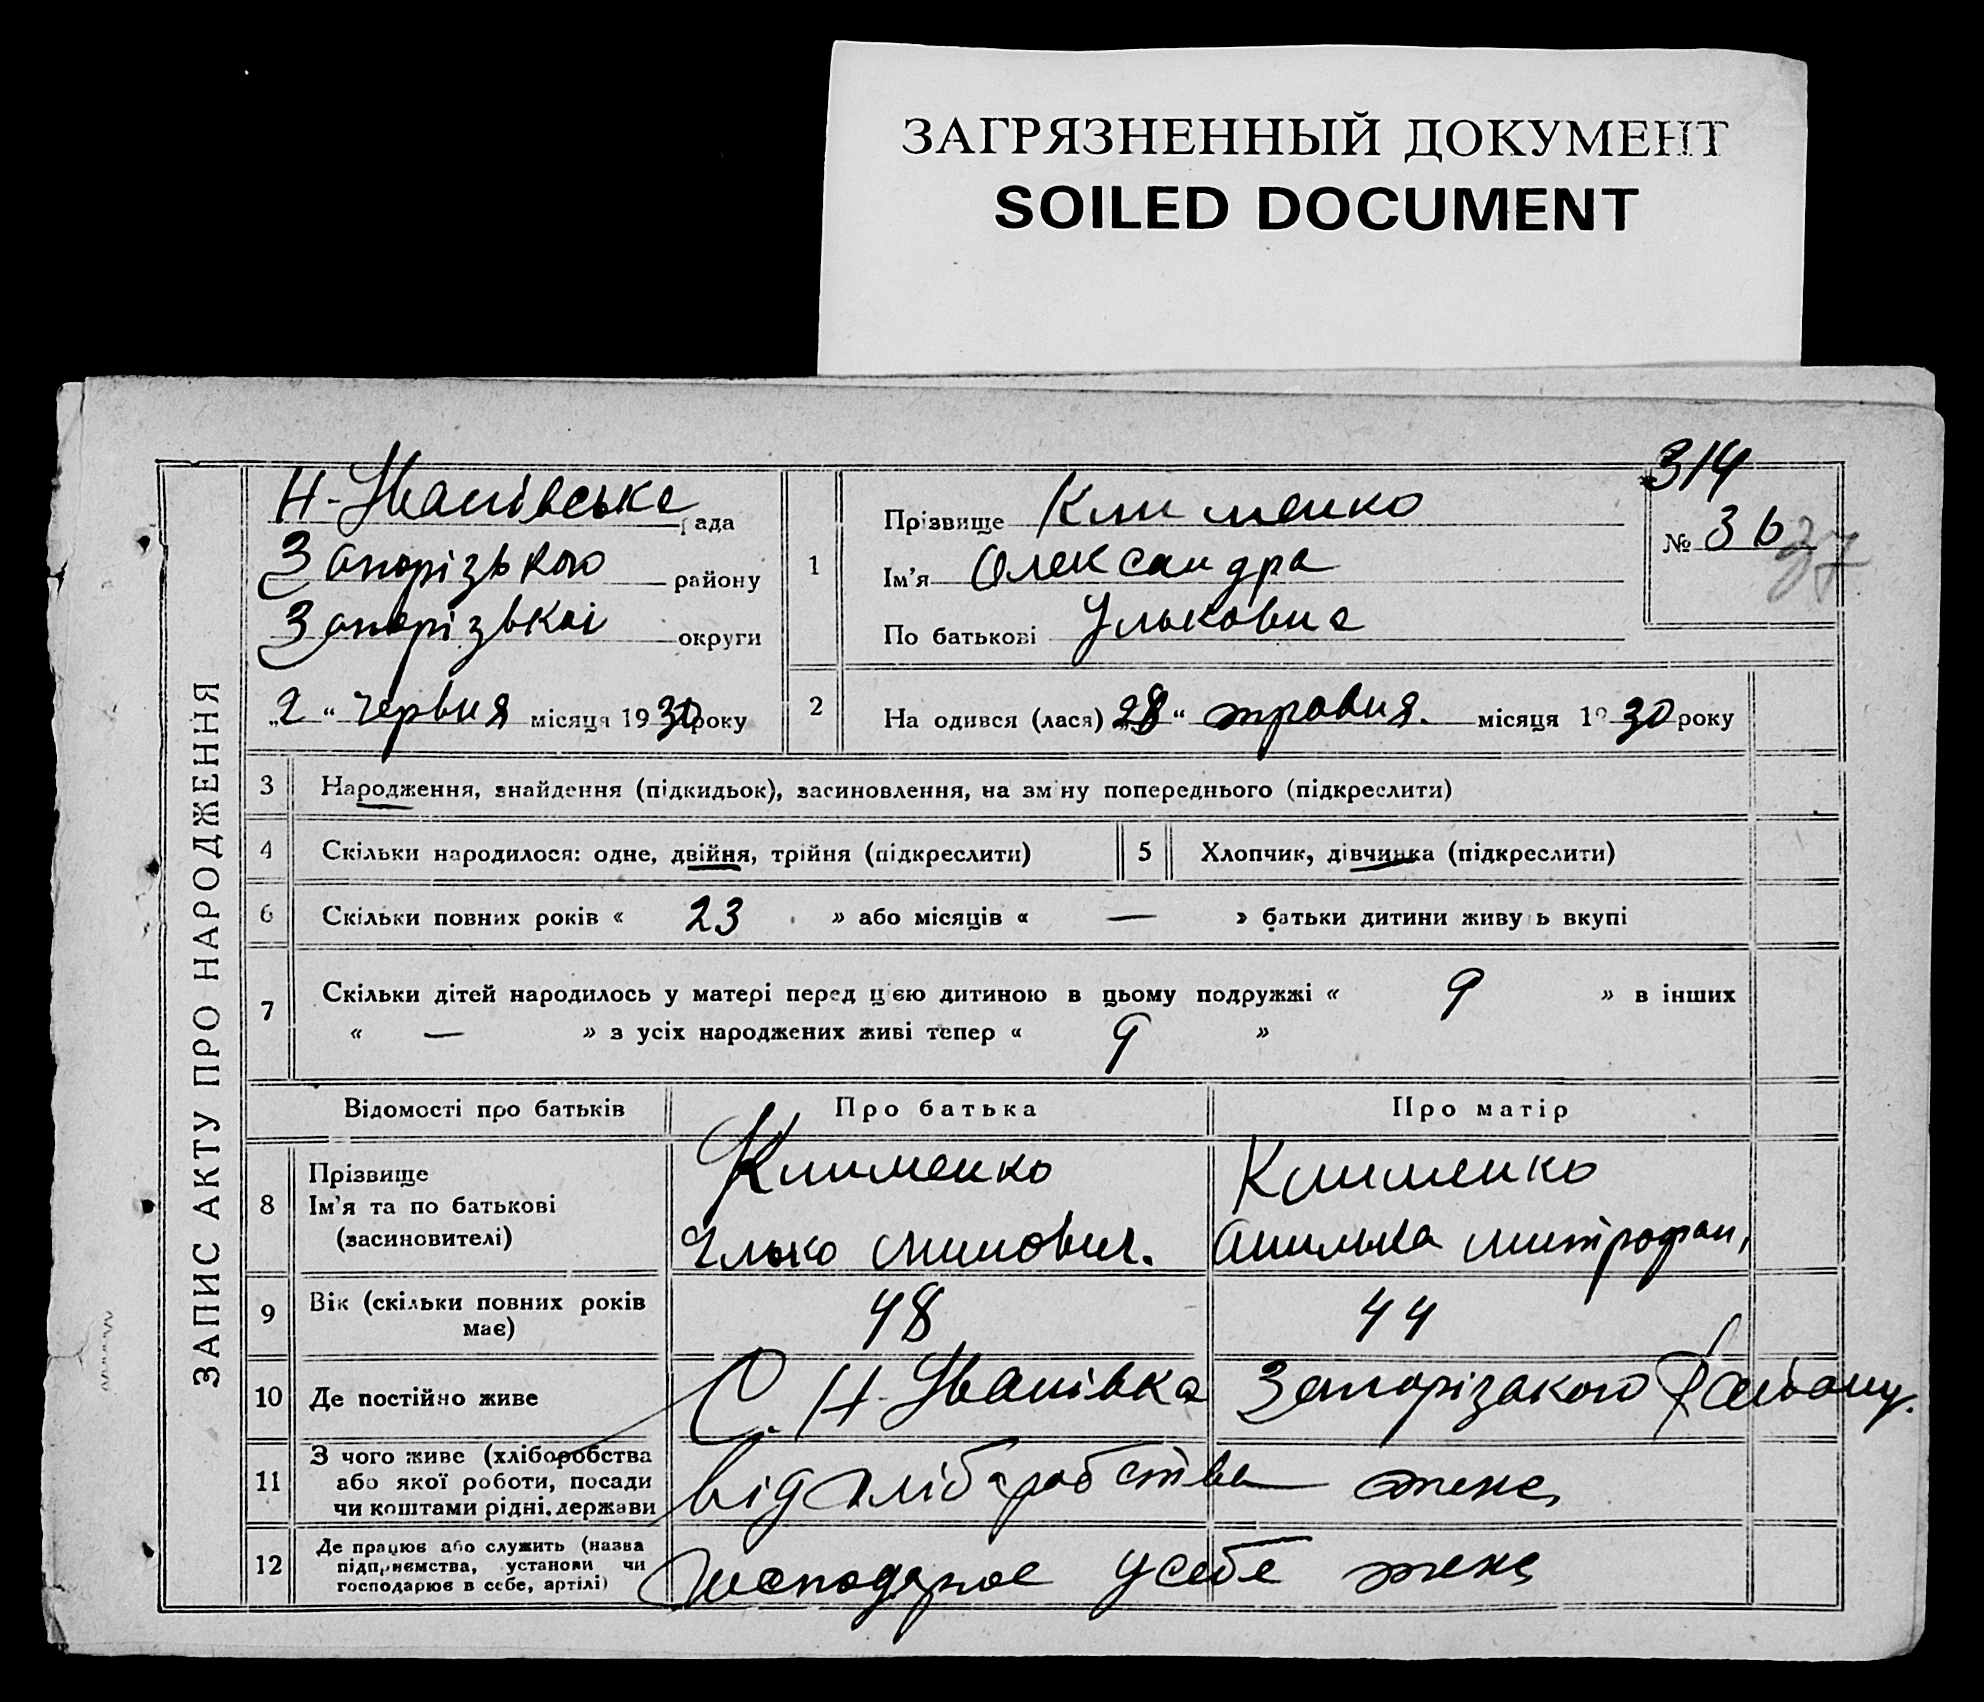 ЗАГРЯЗНЕННЫЙ ДОКУМЕНТ
SOILED DOCUMENT
314
ЗАПИС АКТУ ПРО НАРОДЖЕННЯ
Н-Иванівська рада
Запорізького району
Запорізької округи
„2“ червня місяця 1930 року
1
Прізвище Клименко
Ім'я Олександра
По батькові Ульковна
№ 36
37
2
На одився (лася) „28“ травня. місяця 1930 року
3 Народження, знайдення (підкидьок), засиновлення, на зміну попереднього (підкреслити)
4 Скільки народилося: одне, двійня, трійня (підкреслити)
5 Хлопчик, дівчинка (підкреслити)
6 Скільки повних років « 23 » або місяців « — » батьки дитини живуть вкупі
7 Скільки дітей народилось у матері перед цією дитиною в цьому подружжі « 9 » в інших
« — » з усіх народжених живі тепер « 9 »
Відомості про батьків Про батька Про матір
8 Прізвище
Ім'я та по батькові
(засиновителі)
Клименко
Илько
Клименко
митрофан,
9 Вік (скільки повних років має)
48
44
10 Де постійно живе
С. Н-Иванівка Запорізького Району.
11 З чого живе (хліборобства
або якої роботи, посади
чи коштами рідні, держави
від хліборобства
12 Де працює або служить (назва
підприємства, установи чи
господарює в себе, артілі)
господарює у себе